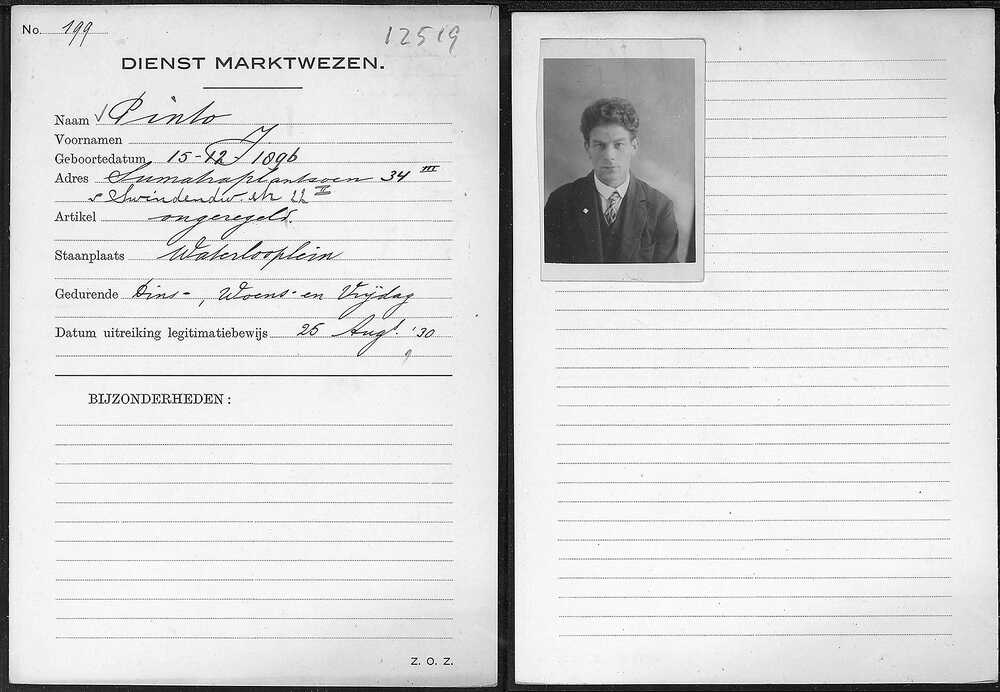 No. 199
12519
DIENST MARKTWEZEN.
Naam √ Pinto
Voornamen J
Geboortedatum 15-12-1896
Adres Sumatraplantsoen 34 III
v Swindendw. str 22 II
Artikel ongeregeld.
Staanplaats Waterlooplein
Gedurende Dins-, Woens- en Vrijdag
Datum uitreiking legitimatiebewijs 26 Augt. '30
BIJZONDERHEDEN:
Z. O. Z.